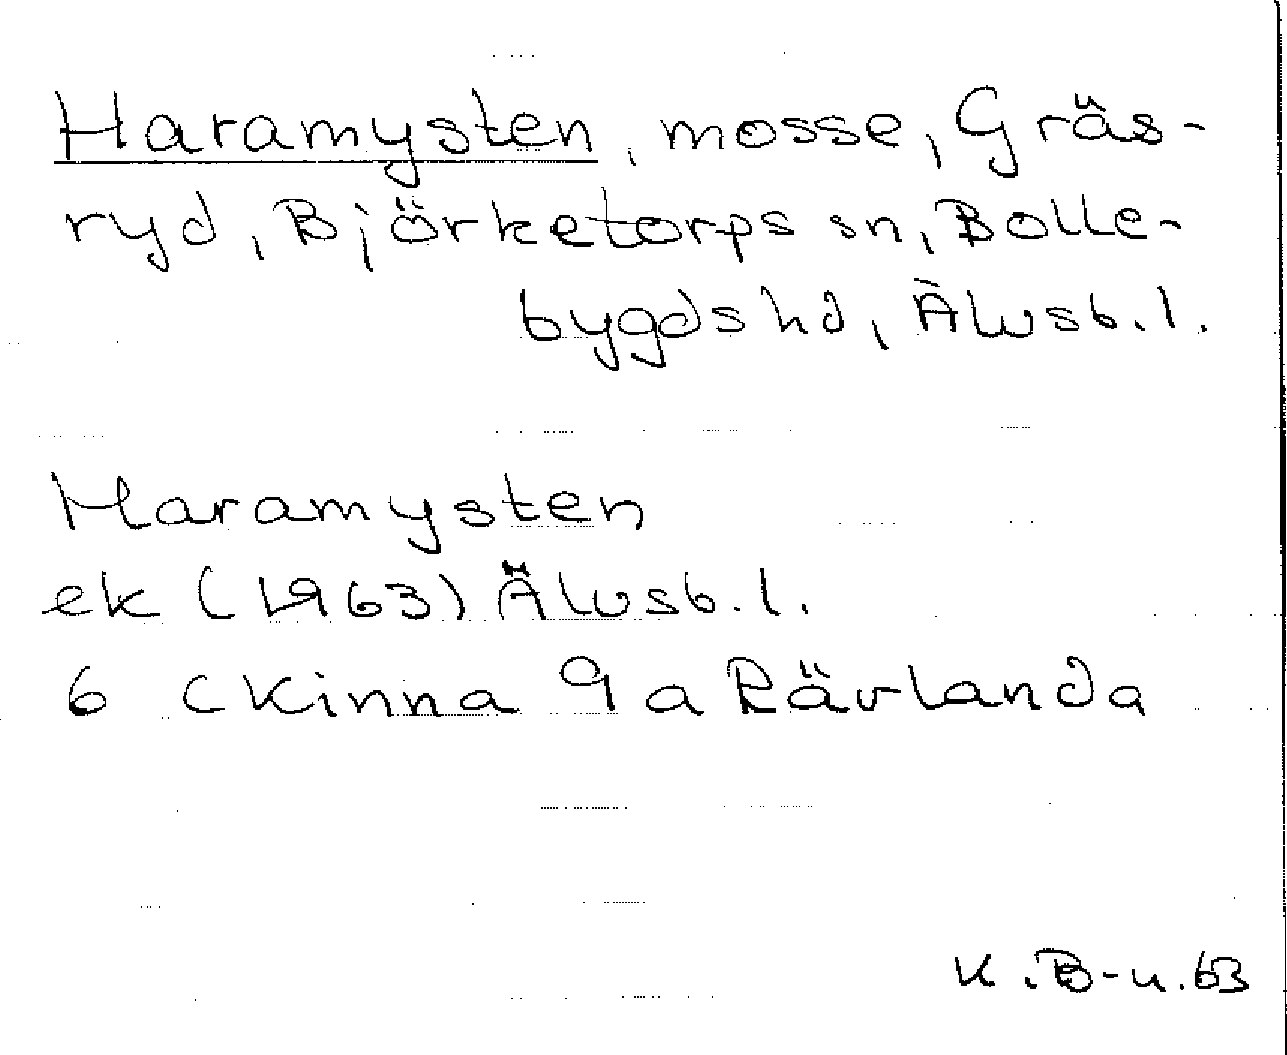 Haramysten, mosse, Gräs-
ryd, Björketorps sn, Bolle-
bygds hd, Älvsb. l.
Haramysten
ek (1963) Älvsb. l.
6 C Kinna 9 a Rävlanda
K. B-n. 63